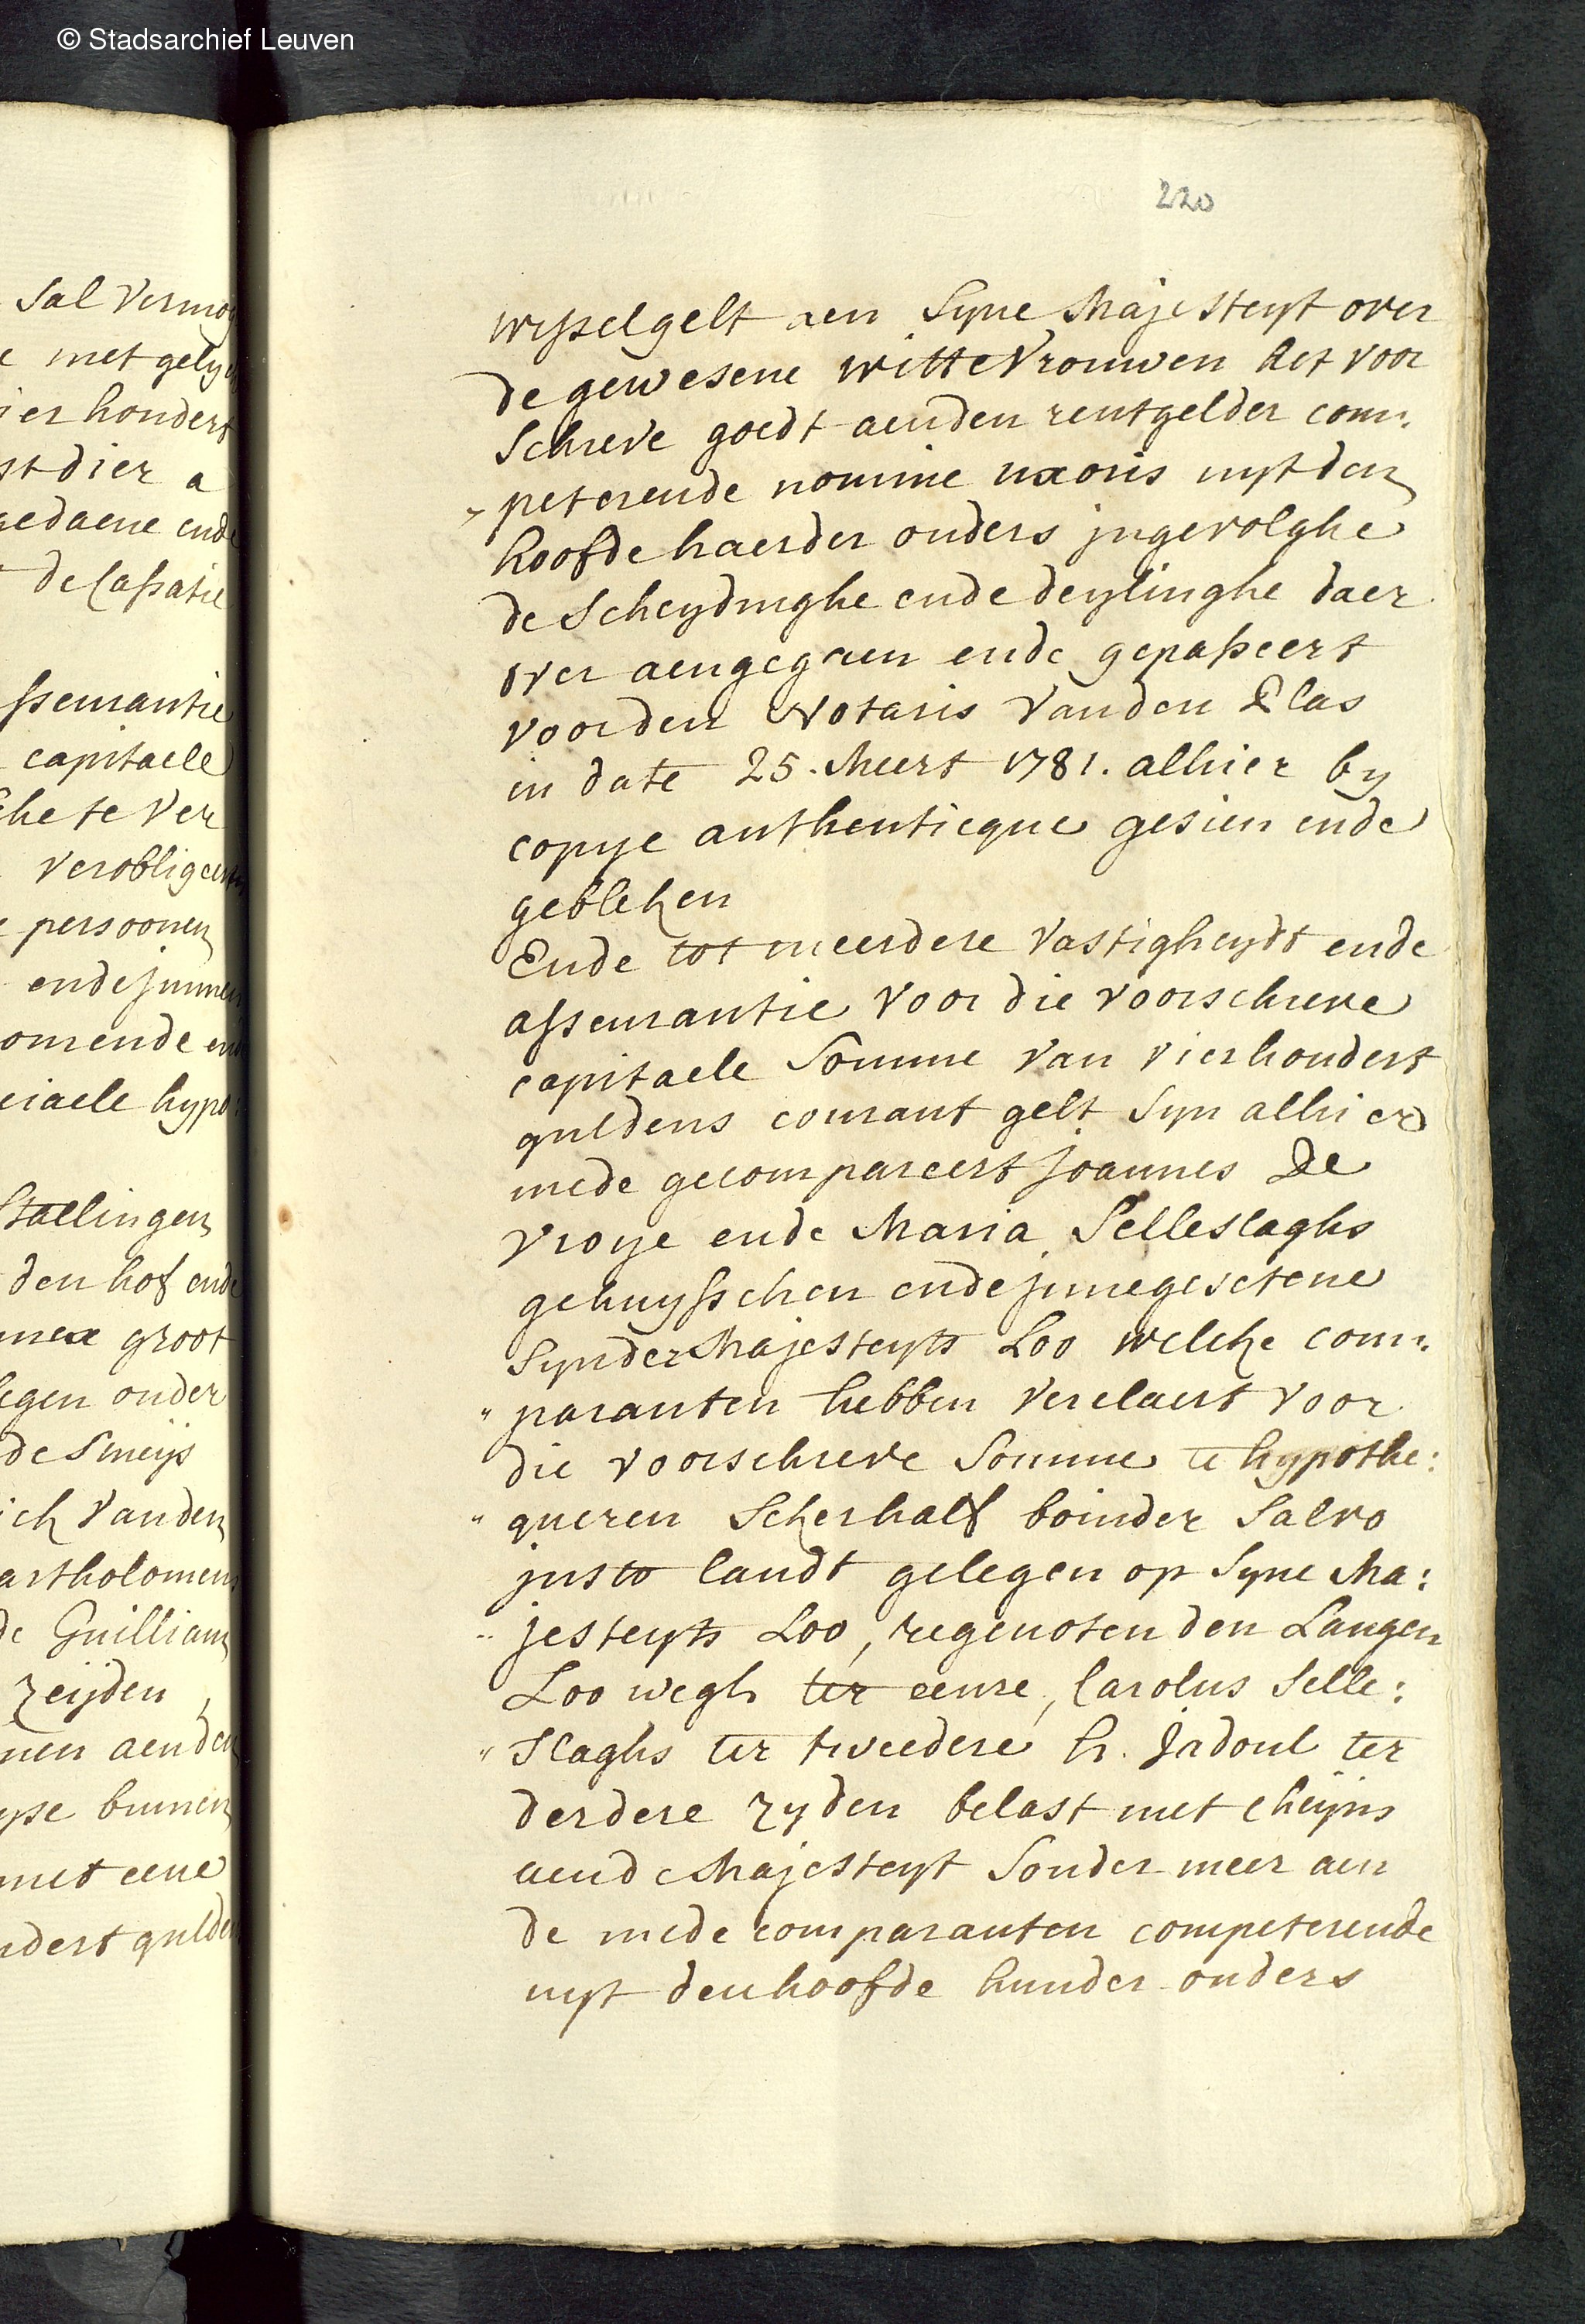 © Stadsarchief Leuven
220
Sal Vermog
met gely
ier honder
st dier a
gedaene ende
de Cassatie
sseurantie
capitaele
che te Ver
verobligeer
persoonen
ende jnnne
omende en
ciaele hypo:
Stallingen
den hof ende
groot
legen onder
de Smeijs
ich Vanden
artholomeus
de Guilliam
zeijden,
nen aenden
yse binnen
met eene
ndert gulde
wisselgelt aen Syne Majesteyt over
de gewesene witte Vrouwen het voor
Schreve goedt aenden rentgelder com„
„ peterende nomine uxoris uyt den
hoofde haerder ouders jngevolghe
de Scheydinghe ende deylinghe daer
over aengegaen ende gepasseert
voorden Notaris Vanden Plas
in date 25. Meert 1781. alhier by
copye authenticque gesien ende
gebleken
Ende tot meerdere Vastigheydt ende
asseurantie voor die voorschreve
capitaele Somme van vierhondert
guldens courant gelt Syn alhier
mede gecompareert joannes De
Vroye ende Maria Selleslaghs
gehuysschen ende jnnegesetene
Synder Majesteyts Loo welcke com„
„ paranten hebben Verclaert voor
die voorschreve Somme te hypothe:
„ queren Sekerhalf boinder Salvo
justo landt gelegen op Syne Ma:
„ jesteyts Loo, regenoten den Langen
Loo wegh ter eenre, Carolus Selle:
„ Slaghs ter tweedere h. Jadoul ter
derdere zyden belast met cheijns
aende Majesteyt Sonder meer aen
de mede comparanten competerende
uyt den hoofde hunder ouders